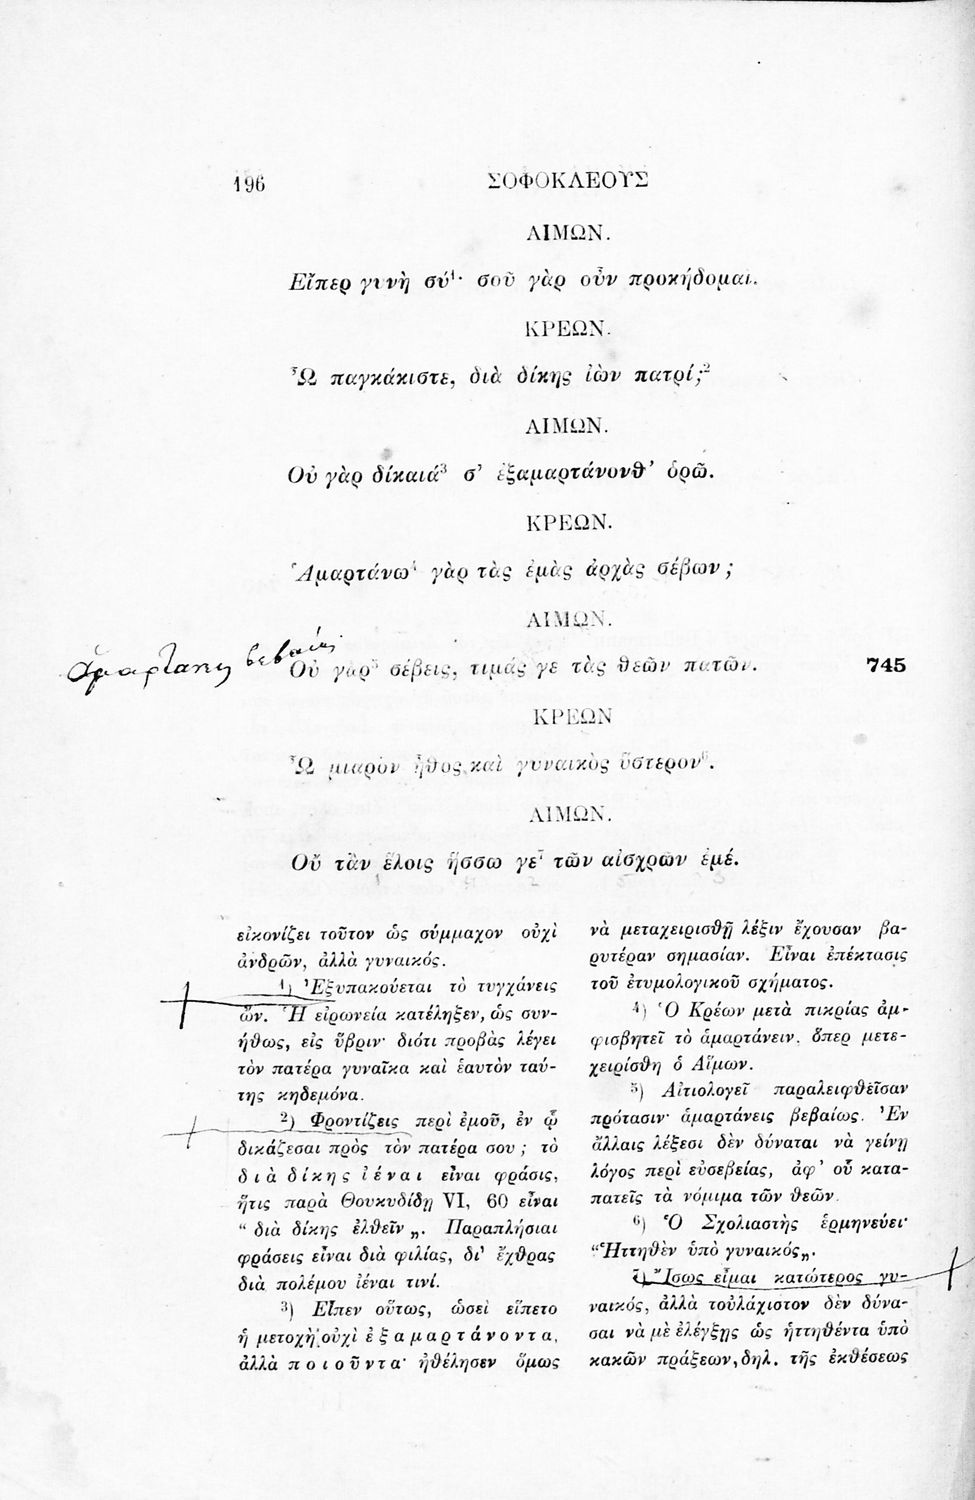 196
ΣΟΦΟΚΛΕΟΥΣ
ΑΙΜΩΝ.
Εἴπερ γυνὴ σύ¹· σοῦ γὰρ οὖν προκήδομαι.
ΚΡΕΩΝ.
Ὦ παγκάκιστε, διὰ δίκης ἰὼν πατρί;²
ΑΙΜΩΝ.
Οὐ γὰρ δίκαιά³ σ’ ἐξαμαρτάνονθ’ ὁρῶ.
ΚΡΕΩΝ.
Ἁμαρτάνω⁴ γὰρ τὰς ἐμὰς ἀρχὰς σέβων;
ΑΙΜΩΝ.
ἁμαρτάνεις βεβαίως
Οὐ γὰρ⁵ σέβεις, τιμάς γε τὰς θεῶν πατῶν. 745
ΚΡΕΩΝ
Ὦ μιαρὸν ἦθος καὶ γυναικὸς ὕστερον⁶.
ΑΙΜΩΝ.
Οὔ τἂν ἕλοις ἥσσω γε⁷ τῶν αἰσχρῶν ἐμέ.
εἰκονίζει τοῦτον ὡς σύμμαχον οὐχὶ
ἀνδρῶν, ἀλλὰ γυναικός.
¹) Ἐξυπακούεται τὸ τυγχάνεις
ὤν. Ἡ εἰρωνεία κατέληξεν, ὡς συν-
ήθως, εἰς ὕβριν· διότι προβὰς λέγει
τὸν πατέρα γυναῖκα καὶ ἑαυτὸν ταύ-
της κηδεμόνα.
²) Φροντίζεις περὶ ἐμοῦ, ἐν ᾧ
δικάζεσαι πρὸς τὸν πατέρα σου; τὸ
διὰ δίκης ἰέναι εἶναι φράσις,
ἥτις παρὰ Θουκυδίδῃ VI, 60 εἶναι
“ διὰ δίκης ἐλθεῖν „. Παραπλήσιαι
φράσεις εἶναι διὰ φιλίας, δι’ ἔχθρας
διὰ πολέμου ἰέναι τινί.
³) Εἶπεν οὕτως, ὡσεὶ εἵπετο
ἡ μετοχὴ οὐχὶ ἐξαμαρτάνοντα,
ἀλλὰ ποιοῦντα· ἠθέλησεν ὅμως
νὰ μεταχειρισθῇ λέξιν ἔχουσαν βα-
ρυτέραν σημασίαν. Εἶναι ἐπέκτασις
τοῦ ἐτυμολογικοῦ σχήματος.
⁴) Ὁ Κρέων μετὰ πικρίας ἀμ-
φισβητεῖ τὸ ἁμαρτάνειν, ὅπερ μετε-
χειρίσθη ὁ Αἵμων.
⁵) Αἰτιολογεῖ παραλειφθεῖσαν
πρότασιν· ἁμαρτάνεις βεβαίως. Ἐν
ἄλλαις λέξεσι δὲν δύναται νὰ γείνῃ
λόγος περὶ εὐσεβείας, ἀφ’ οὗ κατα-
πατεῖς τὰ νόμιμα τῶν θεῶν.
⁶) Ὁ Σχολιαστὴς ἑρμηνεύει·
“Ἡττηθὲν ὑπὸ γυναικός„.
⁷) Ἴσως εἶμαι κατώτερος γυ-
ναικός, ἀλλὰ τοὐλάχιστον δὲν δύνα-
σαι νὰ μὲ ἐλέγξῃς ὡς ἡττηθέντα ὑπὸ
κακῶν πράξεων, δηλ. τῆς ἐκθέσεως